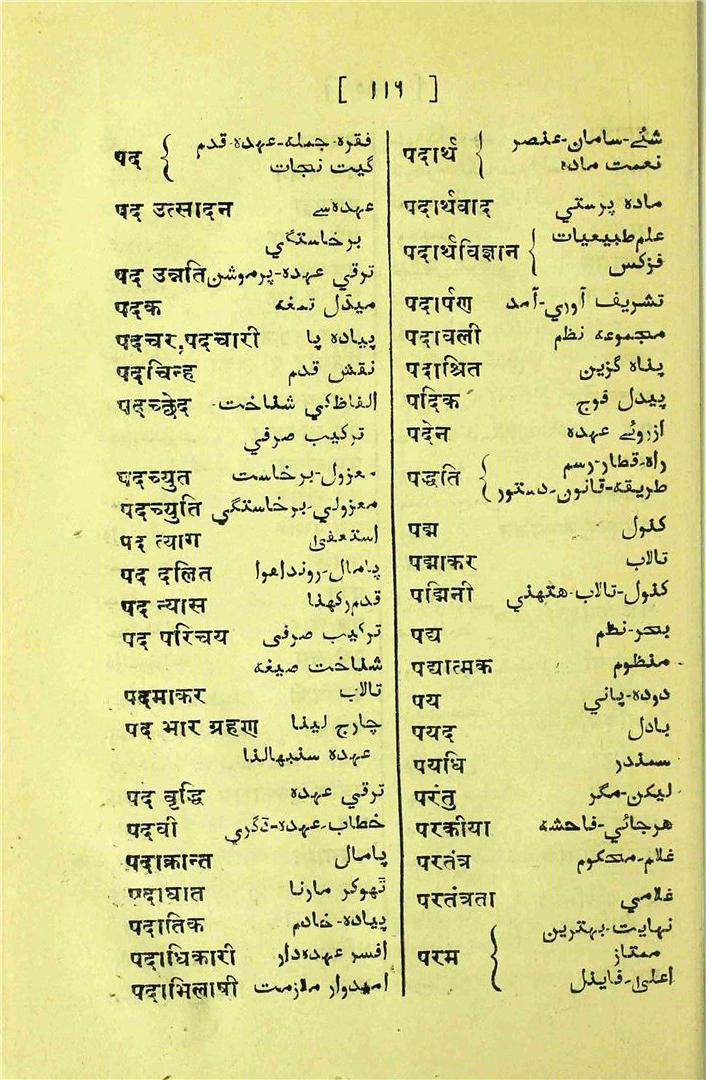 [ ۱۱۶ ]
पद { فقره-جمله-عہدہ-قدم
گیت نجات
पद उत्सादन عہدہ سے
برخاستگي
पद उन्नति ترقي عہدہ-پرموشن
पदक میڈل تمغه
पदचर,पदचारी پیادہ پا
पदचिन्ह نقش قدم
पदच्छेद الفاظ کي شناخت-
ترکیب صرفي
पदच्युत معزول-برخاست
पदच्युति معزولي-برخاستگي
पद त्याग استعفیٰ
पद दलित پامال-روندا ہوا
पद न्यास قدم رکھنا
पद परिचय ترکیب صرفی
شناخت صیغه
पदमाकर تالاب
पद भार ग्रहण چارج لینا
عہدہ سنبھالنا
पद वृद्धि ترقي عہدہ
पदवी خطاب-عہدہ-ڈگري
पदाक्रान्त پامال
पदाघात ٹھوکر مارنا
पदातिक پیادہ-خادم
पदाधिकारी افسر عہدہ دار
पदाभिलाषी امیدوار ملازمت
पदार्थ { شئے-سامان-عنصر
نعمت مادہ
पदार्थवाद مادہ پرستي
पदार्थविज्ञान { علم طبیعیات
فزکس
पदार्पण تشریف آوري-آمد
पदावली مجموعه نظم
पदाश्रित پناہ گزین
पदिक پیدل فوج
पदेन ازروئے عہدہ
पद्धति { راہ-قطار-رسم
طریقه-قانون-دستور
पद्म کنول
पद्माकर تالاب
पद्मिनी کنول-تالاب-ہتھني
पद्य بحر-نظم
पद्यात्मक منظوم
पय دودہ-پاني
पयद بادل
पयधि سمندر
परंतु لیکن-مگر
परकीया ہرجائي-فاحشه
परतंत्र غلام-محکوم
परतंत्रता غلامي
परम { نہایت-بہترین
ممتاز
اعلیٰ-فاینل